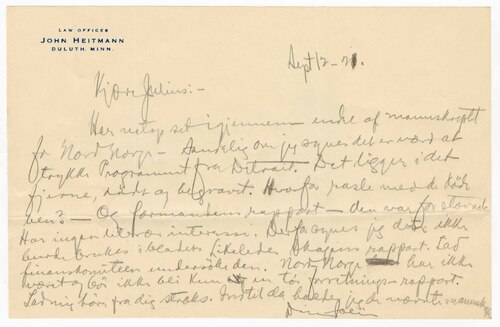 LAW OFFICES
JOHN HEITMANN
DULUTH, MINN.
Sept 12 - 21.
Kjære Julius:-
Har netop set igjennem endel af manuskriptet
for Nord Norge - om jeg synes det er værd at
trykke Programmet fra Detroit. Det ligger i det
fjerne, dødt og begravet. Hvorfor rasle med de død
ben? - Og formandens rapport - den var for
Har ingen interesse. Desto synes jeg det ikke
burde brukes i bladet. rapport. Lad
finanskomiteen undersøk den. Nord Norge har ikke
været og bør ikke bli kun en tør forretnings-rapport.
Lad mig høre fra dig straks. Indtil da jeg de manuskr
Din